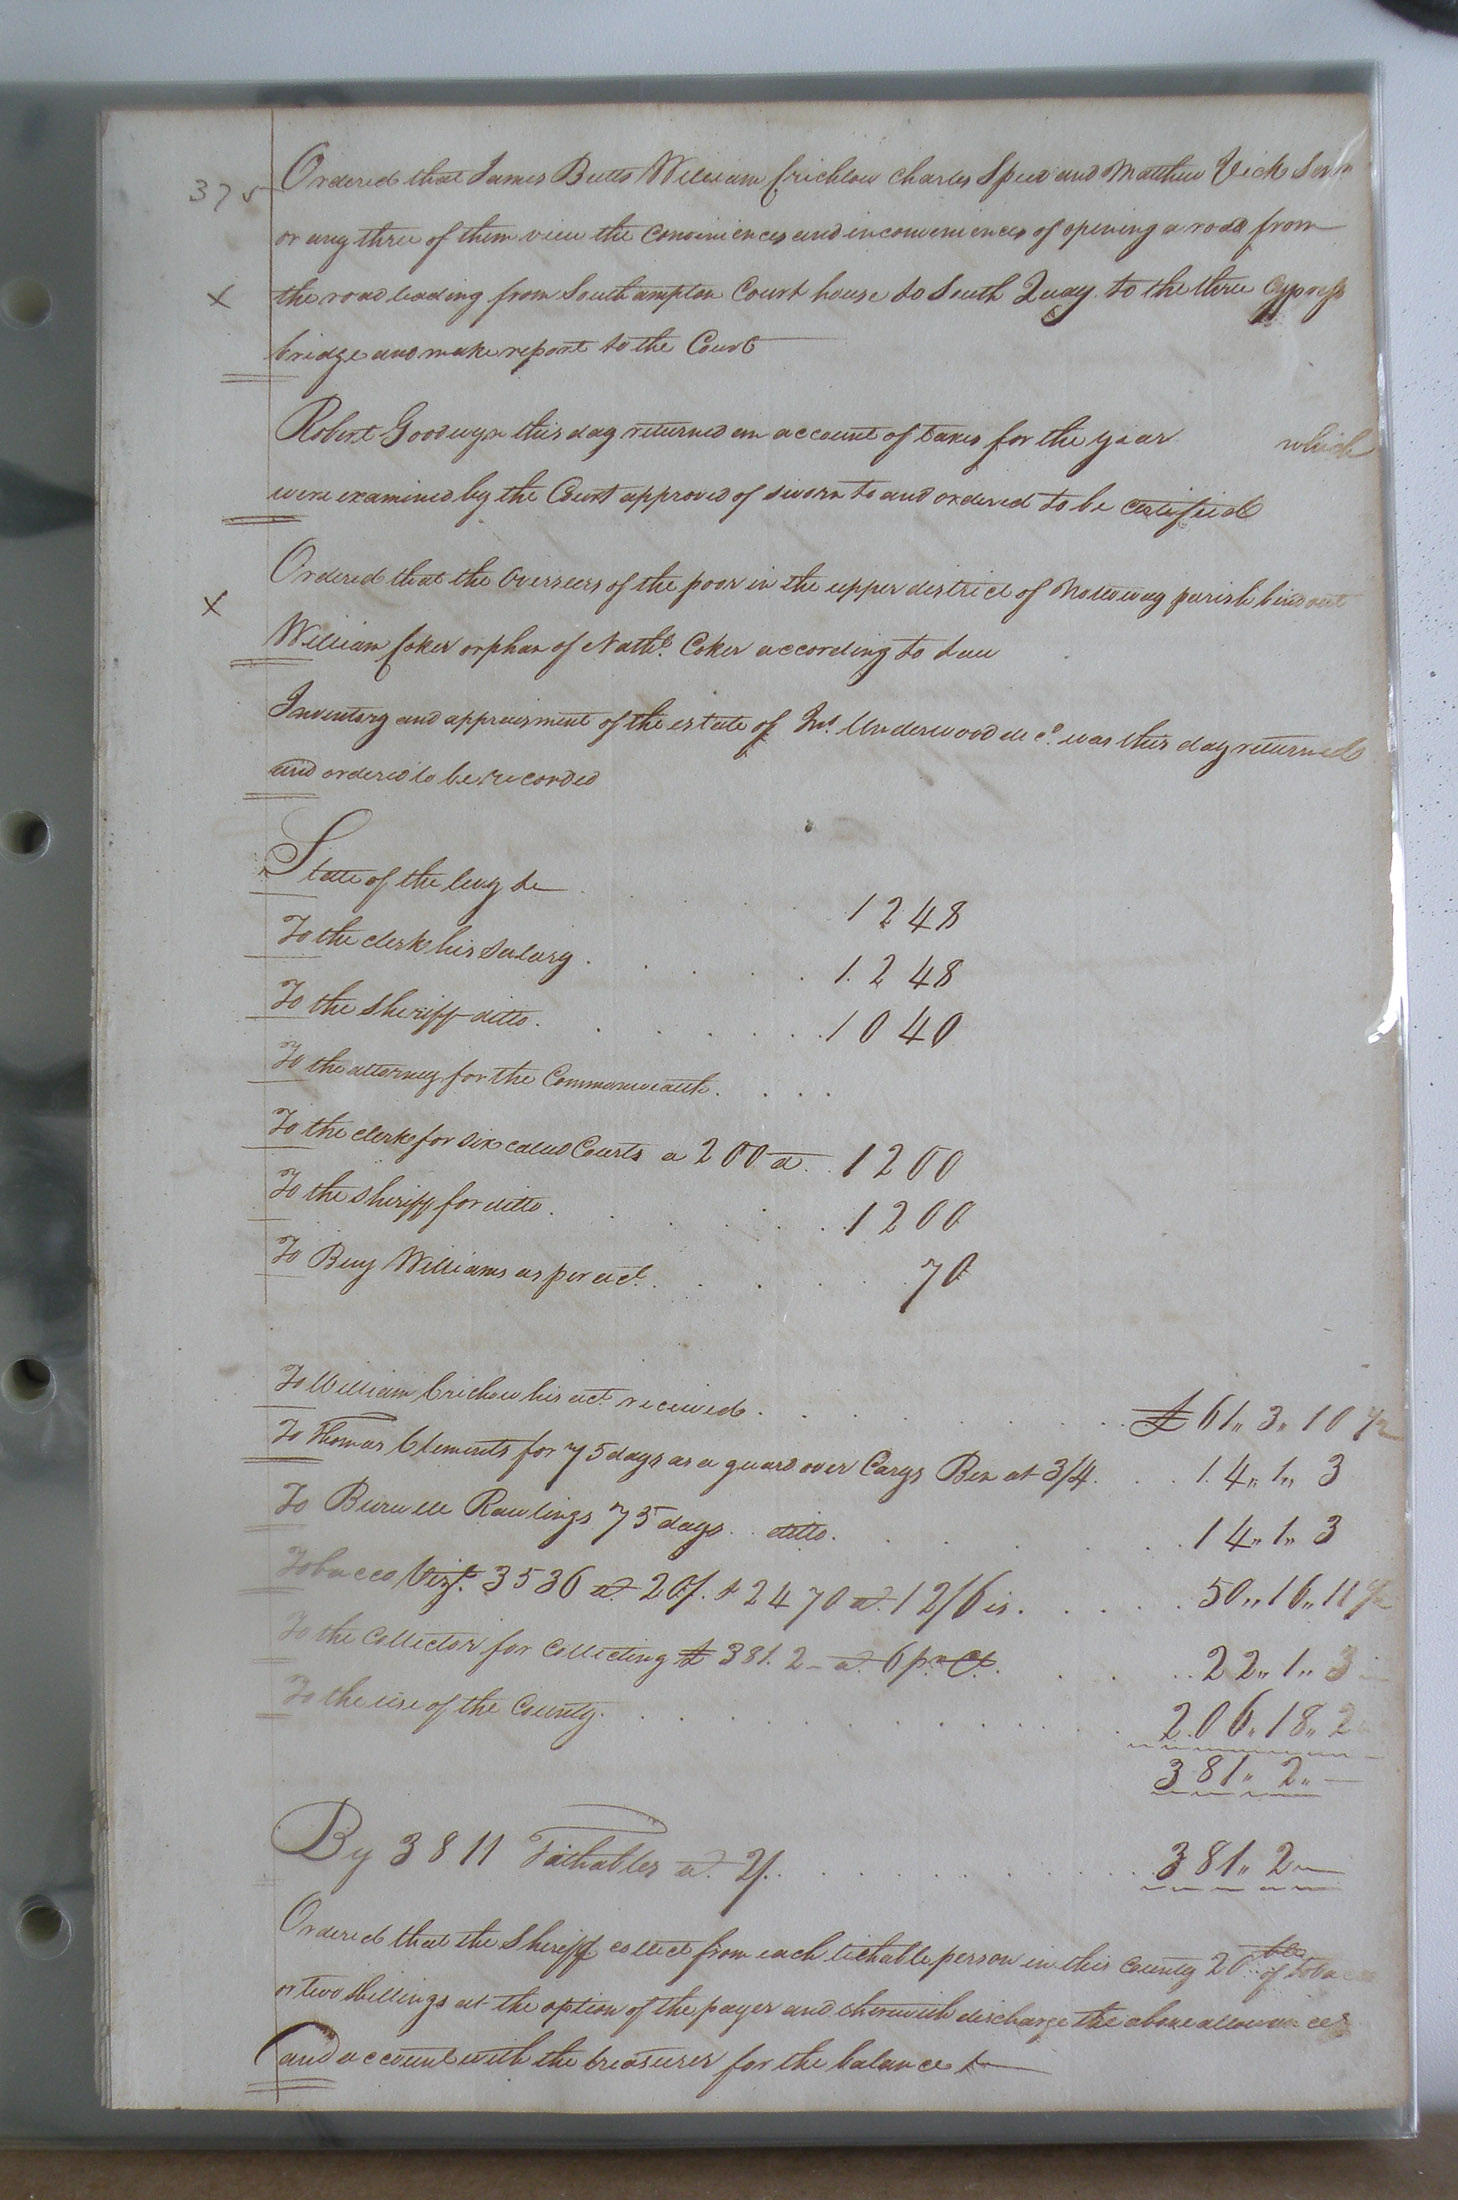 375
Ordered that James Butts William Crichlow Charles Speed and Matthew Vick
or any three of them view the conveniences and inconveniences of opening a road from
X the road leading from Southampton Court house to South Quay to the three Cypress
bridge and make report to the Court
Robert Goodwyn this day returned an account of taxes for the year which
were examined by the Court approved of sworn to and ordered to be certified
Ordered that the Overseers of the poor in the upper district of Nottoway parish bind out
X William Coker orphan of Nathl. Coker according to Law
Inventory and appraisment of the estate of Jno. Underwood decd. was this day returned
and ordered to be recorded
State of the levy to 1248
To the clerk his Salary 1248
To the Sheriff ditto 1040
To the attorney for the Commonwealth
To the clerk for Six called Courts a 200 a 1200
To the Sheriff for ditto 1200
To Benj Williams as per act. 70
To William Crichlow his act. received £61,, 3,, 10 1/2
To Thomas Clements for 75 days as a guard over Carys Ben at 3/4 14,, 1,, 3
To Burwell Rawlings 75 days ditto 14,, 1,, 3
Tobacco Vizt. 3536 at 20/. & 2470 at 12/6 is 50,, 16,, 11 1/2
To the Collector for Collecting £381.2 - at 6 pr Ct. 22,, 1,, 3
To the use of the County 206,, 18,, 2
381,, 2,, —
By 3811 Tithables at 2/. 381,, 2 —
Ordered that the Sheriff collect from each tithable person in this County 20 lbs of tobacco
or two shillings at the option of the payer and therewith discharge the above allowances
and account with the treasurer for the balance &